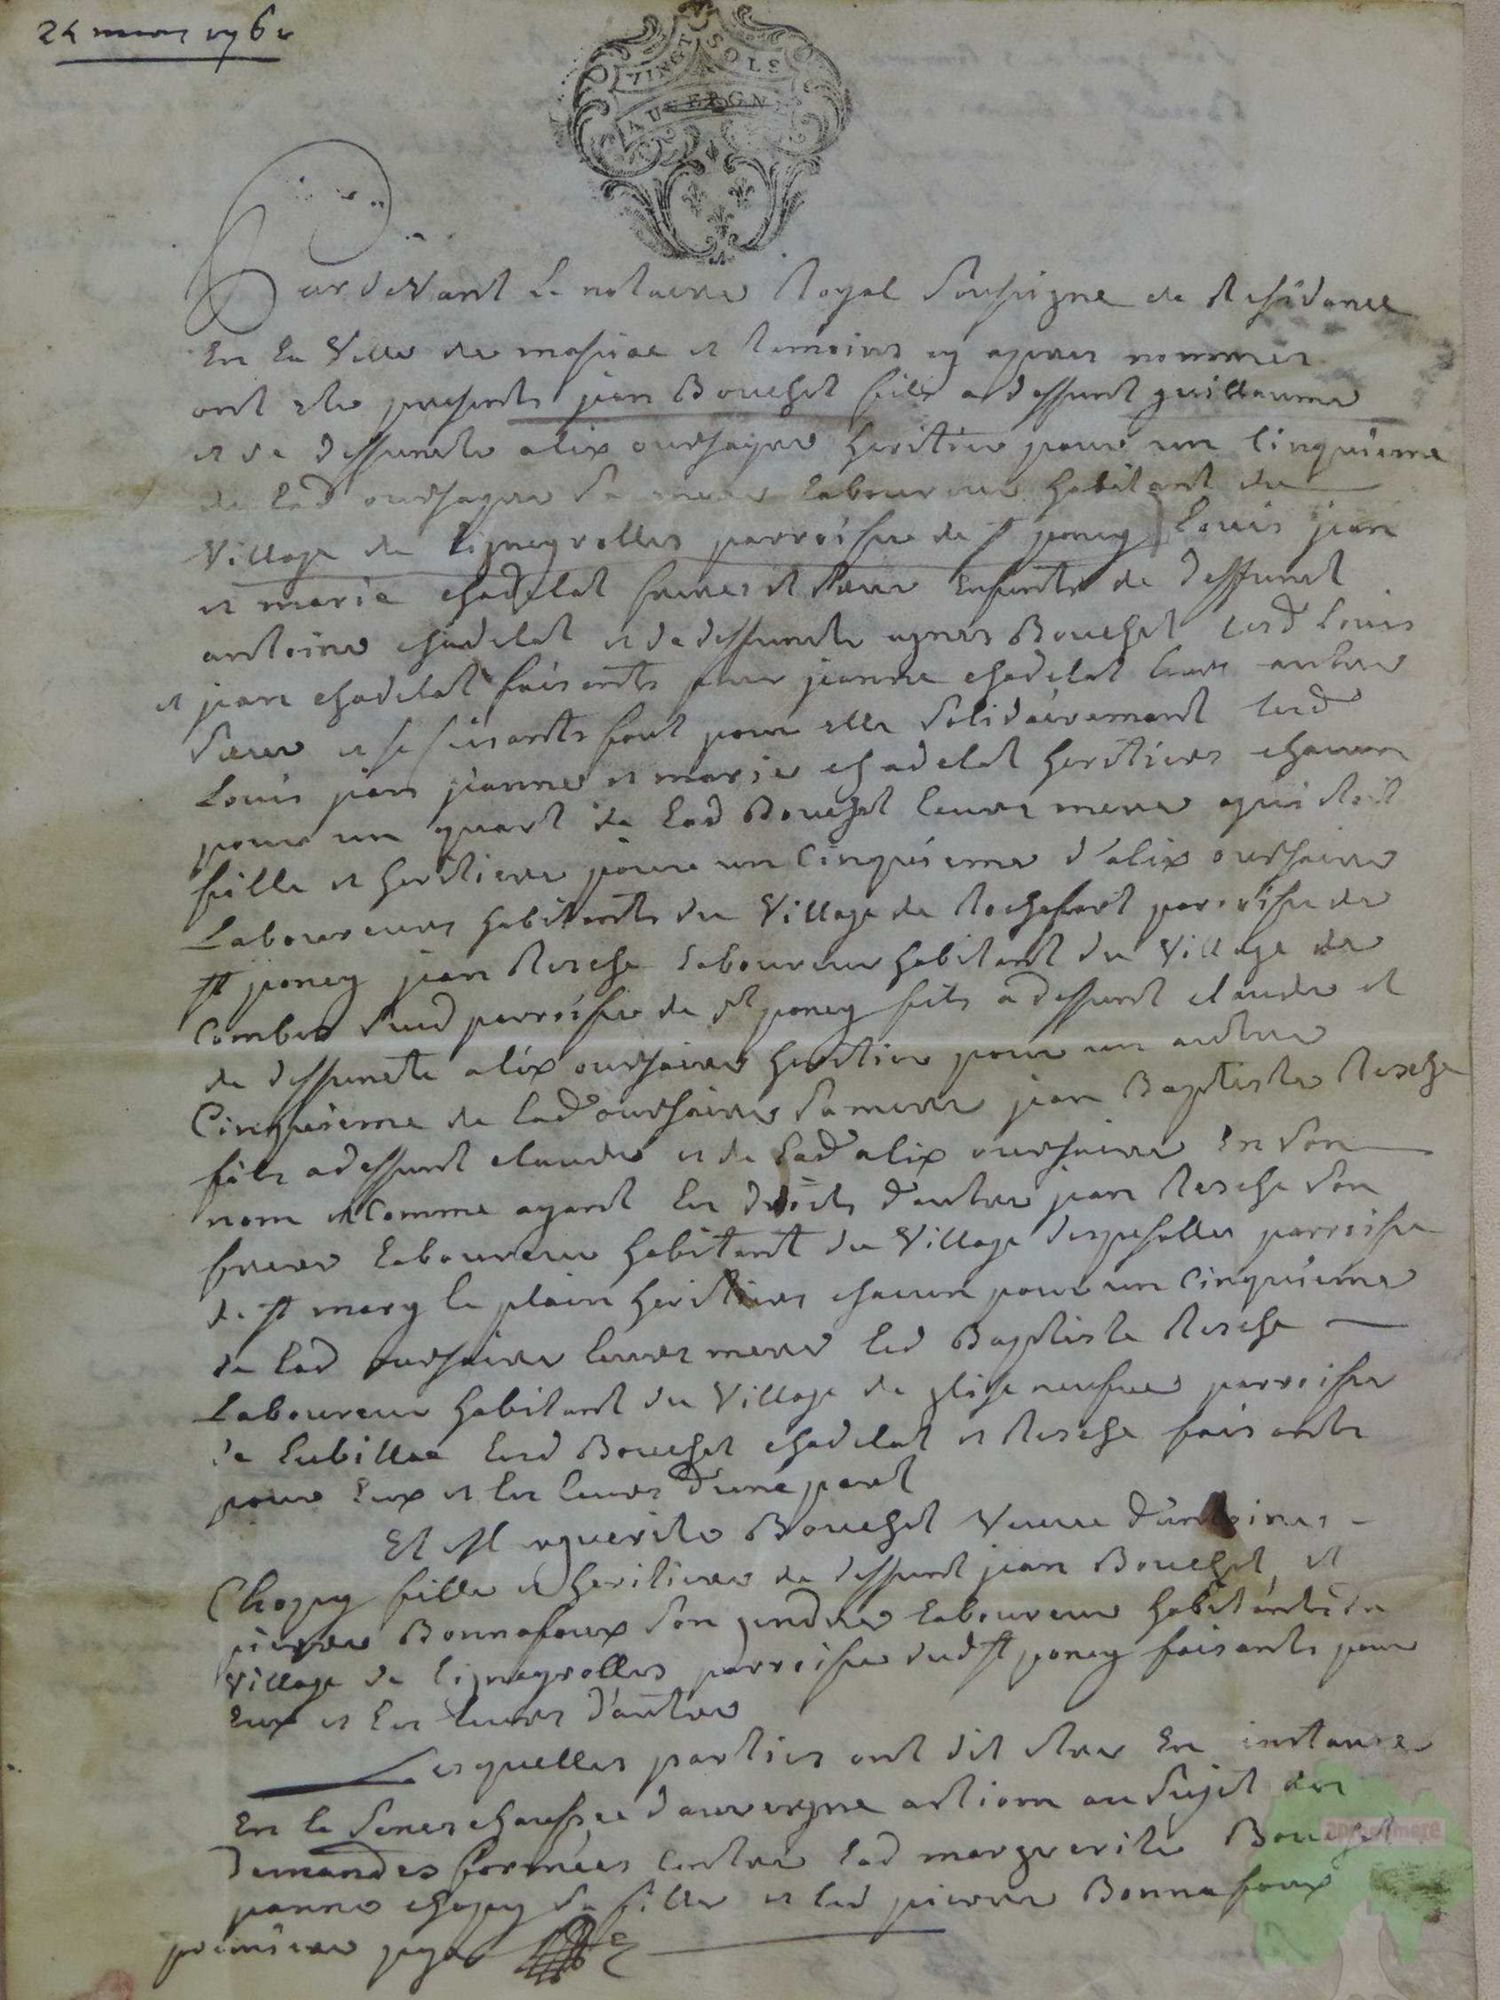 24 mars 176
VINGT SOLS
AUVERGNE
Pardevant le notaire Royal soussigne de Residance
En la Ville de massiac et temoins cy apres nommes
ont ete presents jean Bouchet fils a deffunt guillaume
et de deffuncte alix oursayre heritier pour un Cinquieme
de lad oursayre sa mere laboureur habitant du
Village de ligneyrolles parroisse de st poncy Louis jean
et marie chadelat freres et sœur Enfants de deffunct
antoine chadelat et de deffuncte agnes Bouchet lesd Louis
et jean chadelat faisants pour jeanne chadelat leur autre
sœur et se faisants fort pour elle solidairement lesd
Louis jean jeanne et marie chadelat heritiers chacun
pour un quart de lad Bouchet leur mere qui etoit
fille et heritiere pour un Cinquieme d'alix oursaire
Laboureurs habitants du Village de Rochefort parroisse de
st poncy jean Resche laboureur habitant du Village de
Combe sud parroisse de st poncy fils a deffunt claude et
de deffuncte alix oursaire heritier pour un autre
Cinquieme de lad oursaire sa mere jean Baptiste Resche
fils a deffunt claude et de lad alix oursaire En son
nom et Comme ayant les droits d'autre jean Resche son
frere laboureur habitant du Village parroisse
de st mary le plain heritiers chacun pour un Cinquieme
de lad oursaire leur mere led Baptiste Resche
Laboureur habitant du Village de glise neufve parroisse
de lubillac lesd Bouchet chadelat et Resche faisants
pour Eux et les leurs d'une part
Et marguerite Bouchet Veuve d'antoine
Chopy fille et heritiere de deffunt jean Bouchet, et
pierre Bonnafoux son gendre laboureur habitants du
Village de ligneyrolles parroisse dud st poncy faisants pour
Eux et les leurs d'autre
Lesquelles parties ont dit etre En instance
En la Senechaussee d'auvergne a riom au sujet des
Demandes formées Contre lad marguerite Bouchet
jeanne chopy sa fille et led pierre Bonnafoux
premiere page